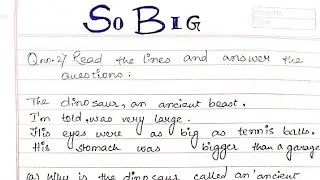 SO BIG
Qno:2/ Read the lines and answer the
questions:
The dinosaur, an ancient beast.
I'm told, was very large.
His eyes were as big as tennis balls.
His stomach was bigger than a garage
(a) Why is the dinosaur called an ancient